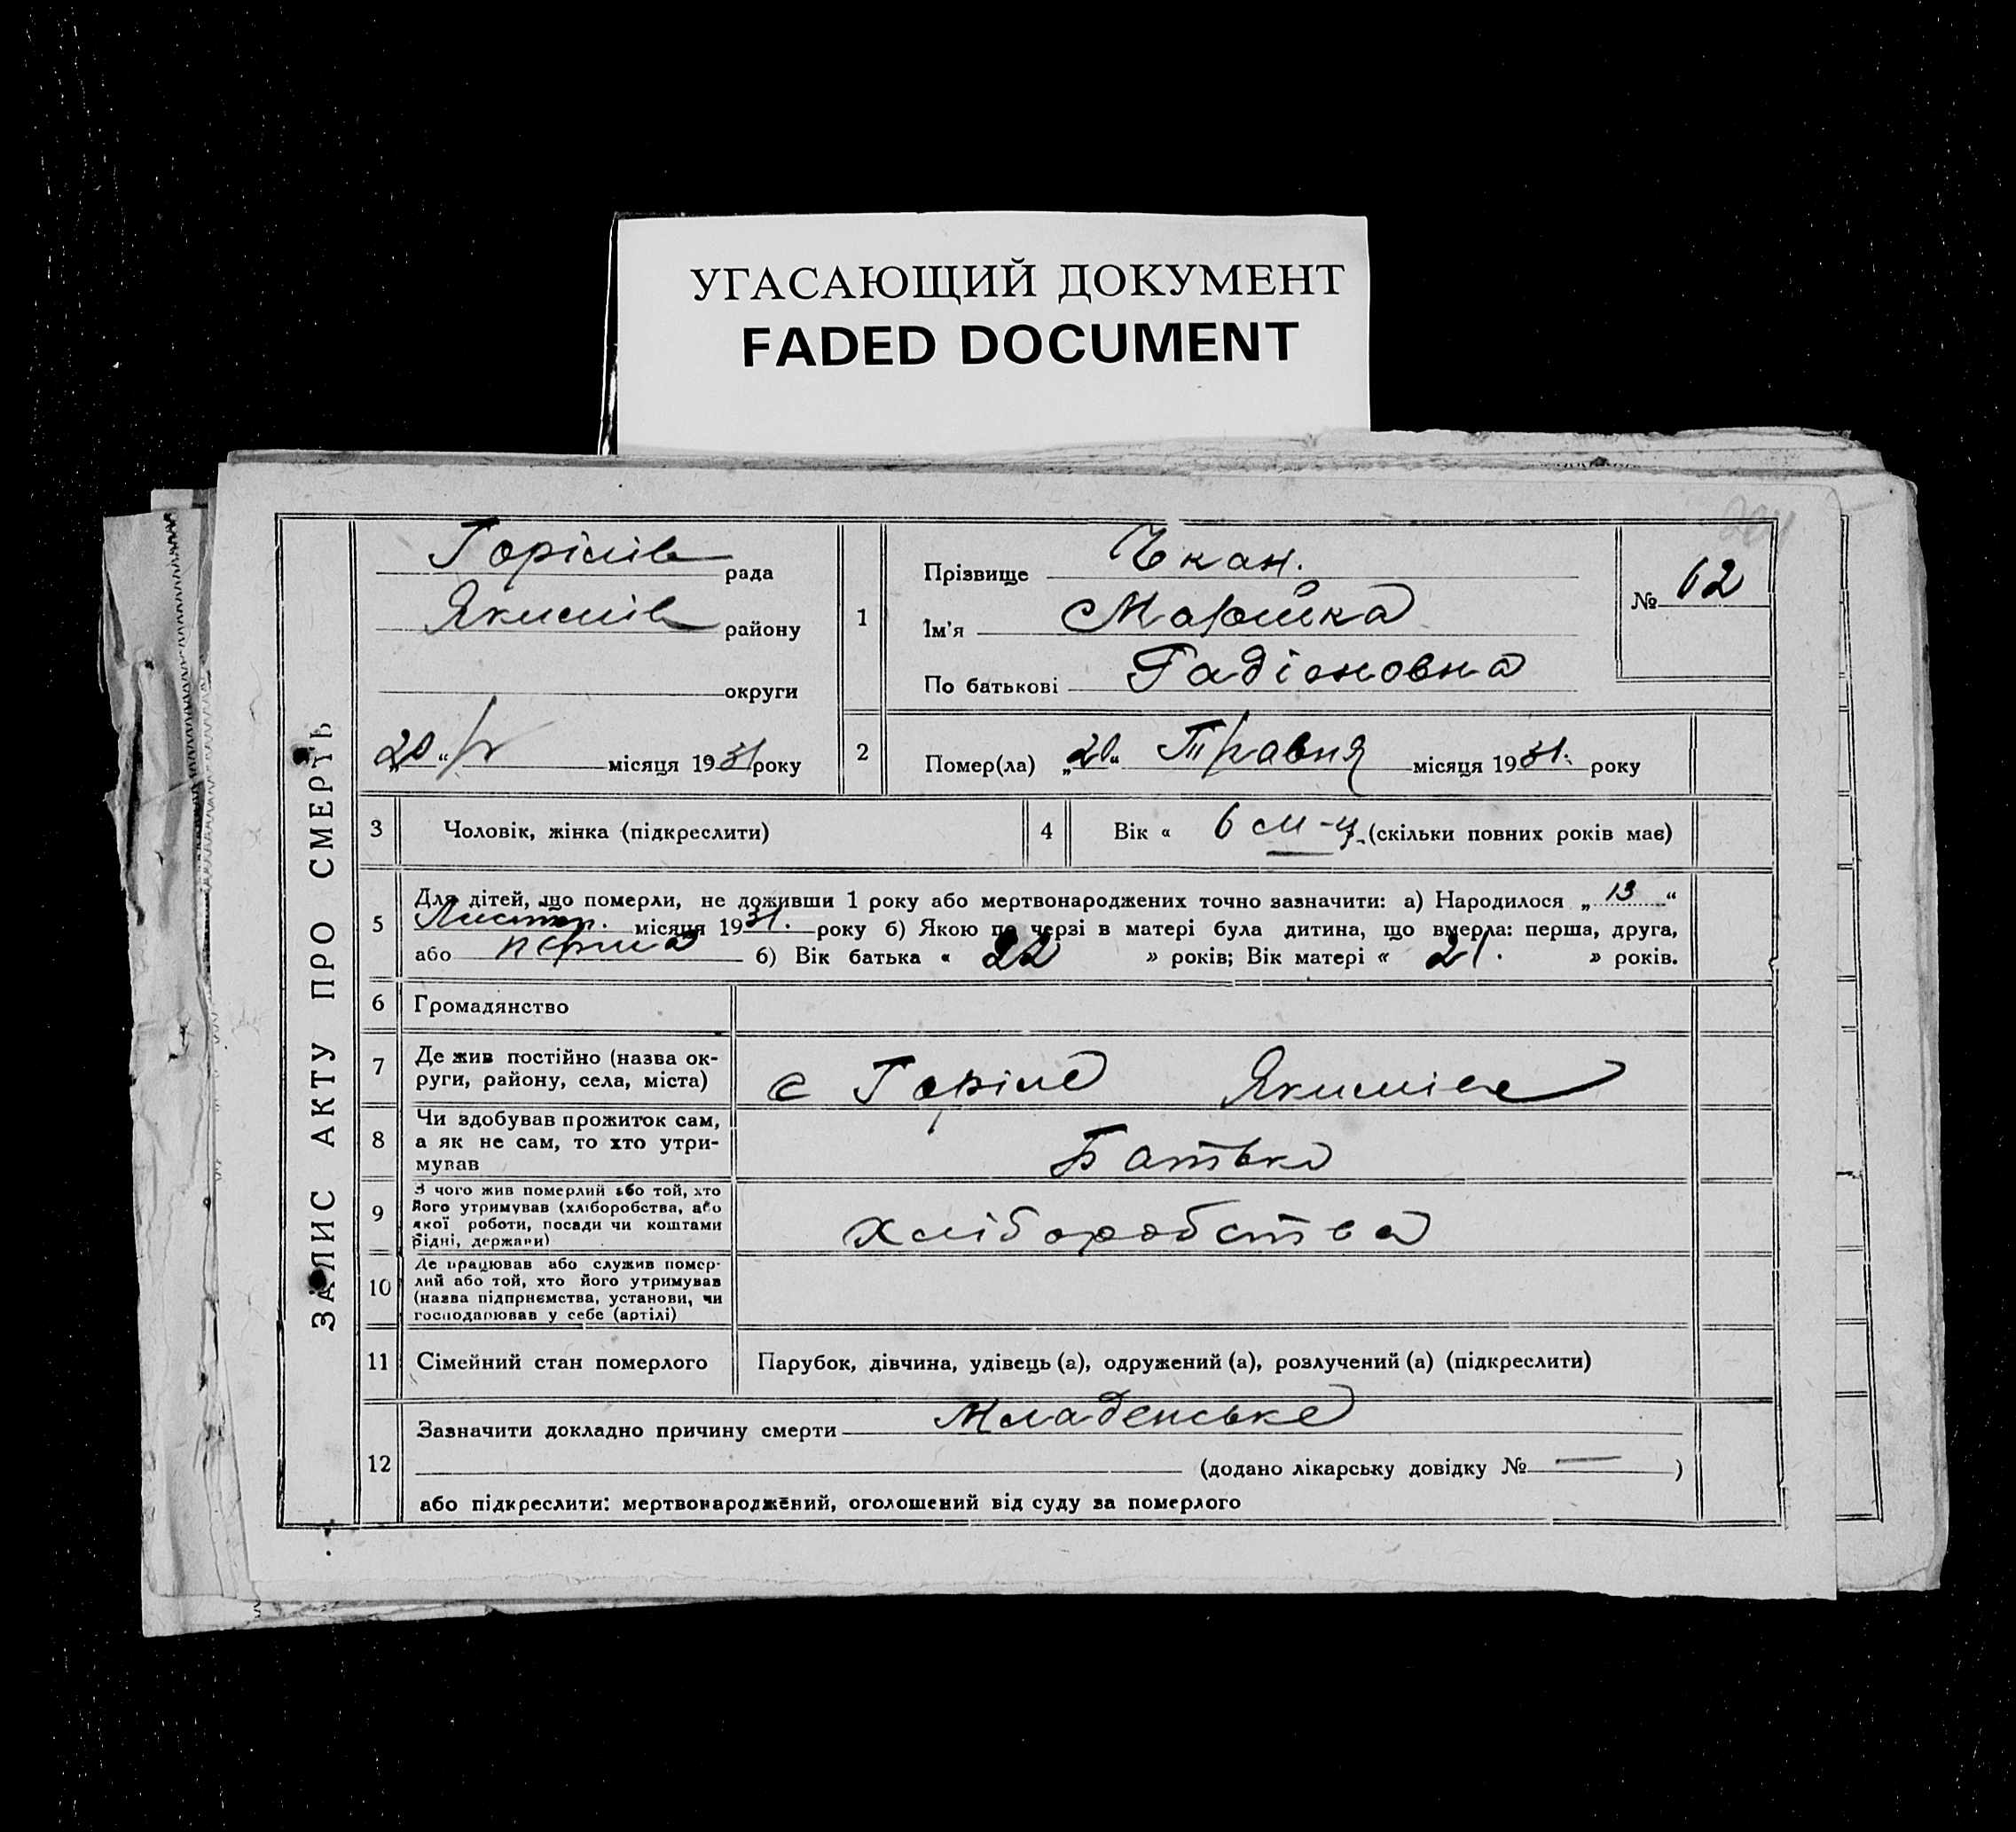 УГАСАЮЩИЙ ДОКУМЕНТ
FADED DOCUMENT
ЗАПИС АКТУ ПРО СМЕРТЬ
Горілів рада
Якимів району
округи
„20“ / V місяця 1931 року
1
Прізвище Чкан.
Ім'я Марийка
По батькові Гадіоновна
№ 62
2
Помер(ла) „20“ Травня місяця 1931. року
3 Чоловік, жінка (підкреслити)
4 Вік « 6 м-ц. (скільки повних років має)
5 Для дітей, що померли, не доживши 1 року або мертвонароджених точно зазначити: а) Народилося „ 13 “
Листоп. місяця 1931. року б) Якою по черзі в матері була дитина, що вмерла: перша, друга,
або перша б) Вік батька « 22 » років; Вік матері « 21. » років.
6 Громадянство
7 Де жив постійно (назва ок-
руги, району, села, міста)
с Горіле Якимів
8 Чи здобував прожиток сам,
а як не сам, то хто утри-
мував
Батько
9 З чого жив померлий або той, хто
його утримував (хліборобства, або
якої роботи, посади чи коштами
рідні, держави)
хліборобства
10 Де працював або служив помер-
лий або той, хто його утримував
(назва підприємства, установи, чи
господарював у себе (артілі)
11 Сімейний стан померлого Парубок, дівчина, удівець (а), одружений (а), розлучений (а) (підкреслити)
12 Зазначити докладно причину смерти Младенське
(додано лікарську довідку № — )
або підкреслити: мертвонароджений, оголошений від суду за померлого